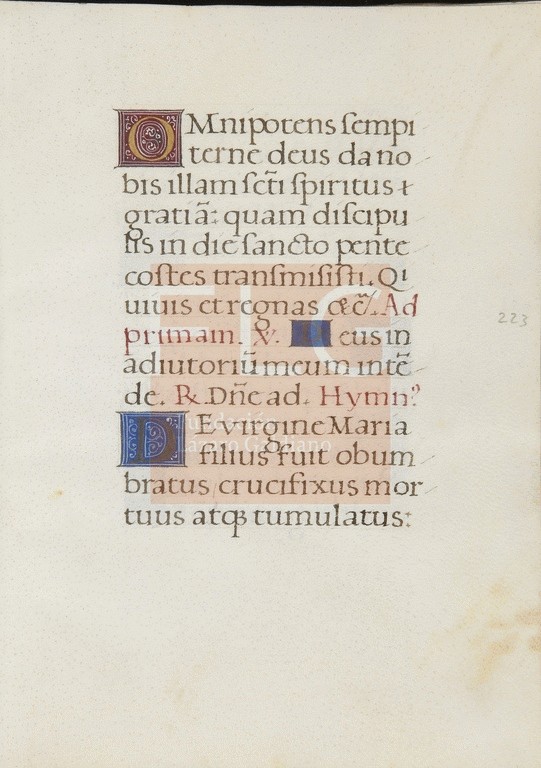 OMnipotens sempi
terne deus da no
bis illam sct̄i spiritus ⁊
gratiā: quam discipu
lis in die sancto pente
costes transmisisti. Qi
uiuis et regnas &c̄. Ad
primam. ℣. Deus in
adiutoriū meum intē
de. ℟. Dñe ad. Hymnꝰ
DE virgine Maria
filius fuit obum
bratus crucifixus mor
tuus atqꝫ tumulatus:
223
FLG
Fundación
Lázaro Galdiano